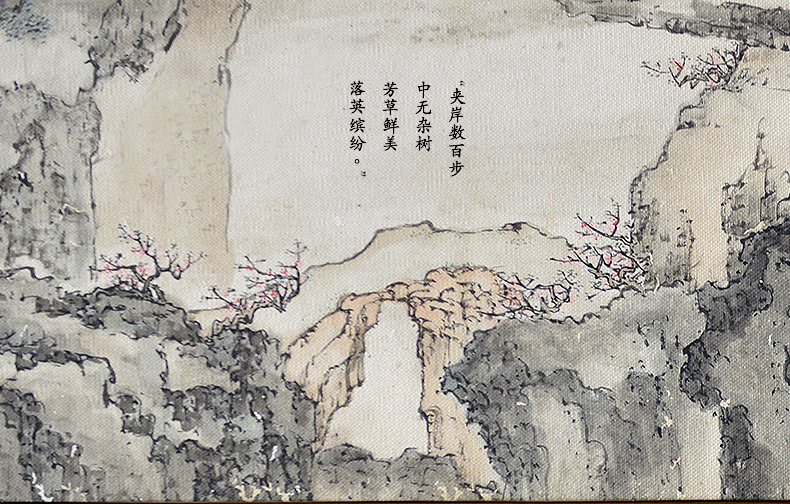 “夹岸数百步
中无杂树
芳草鲜美
落英缤纷。”